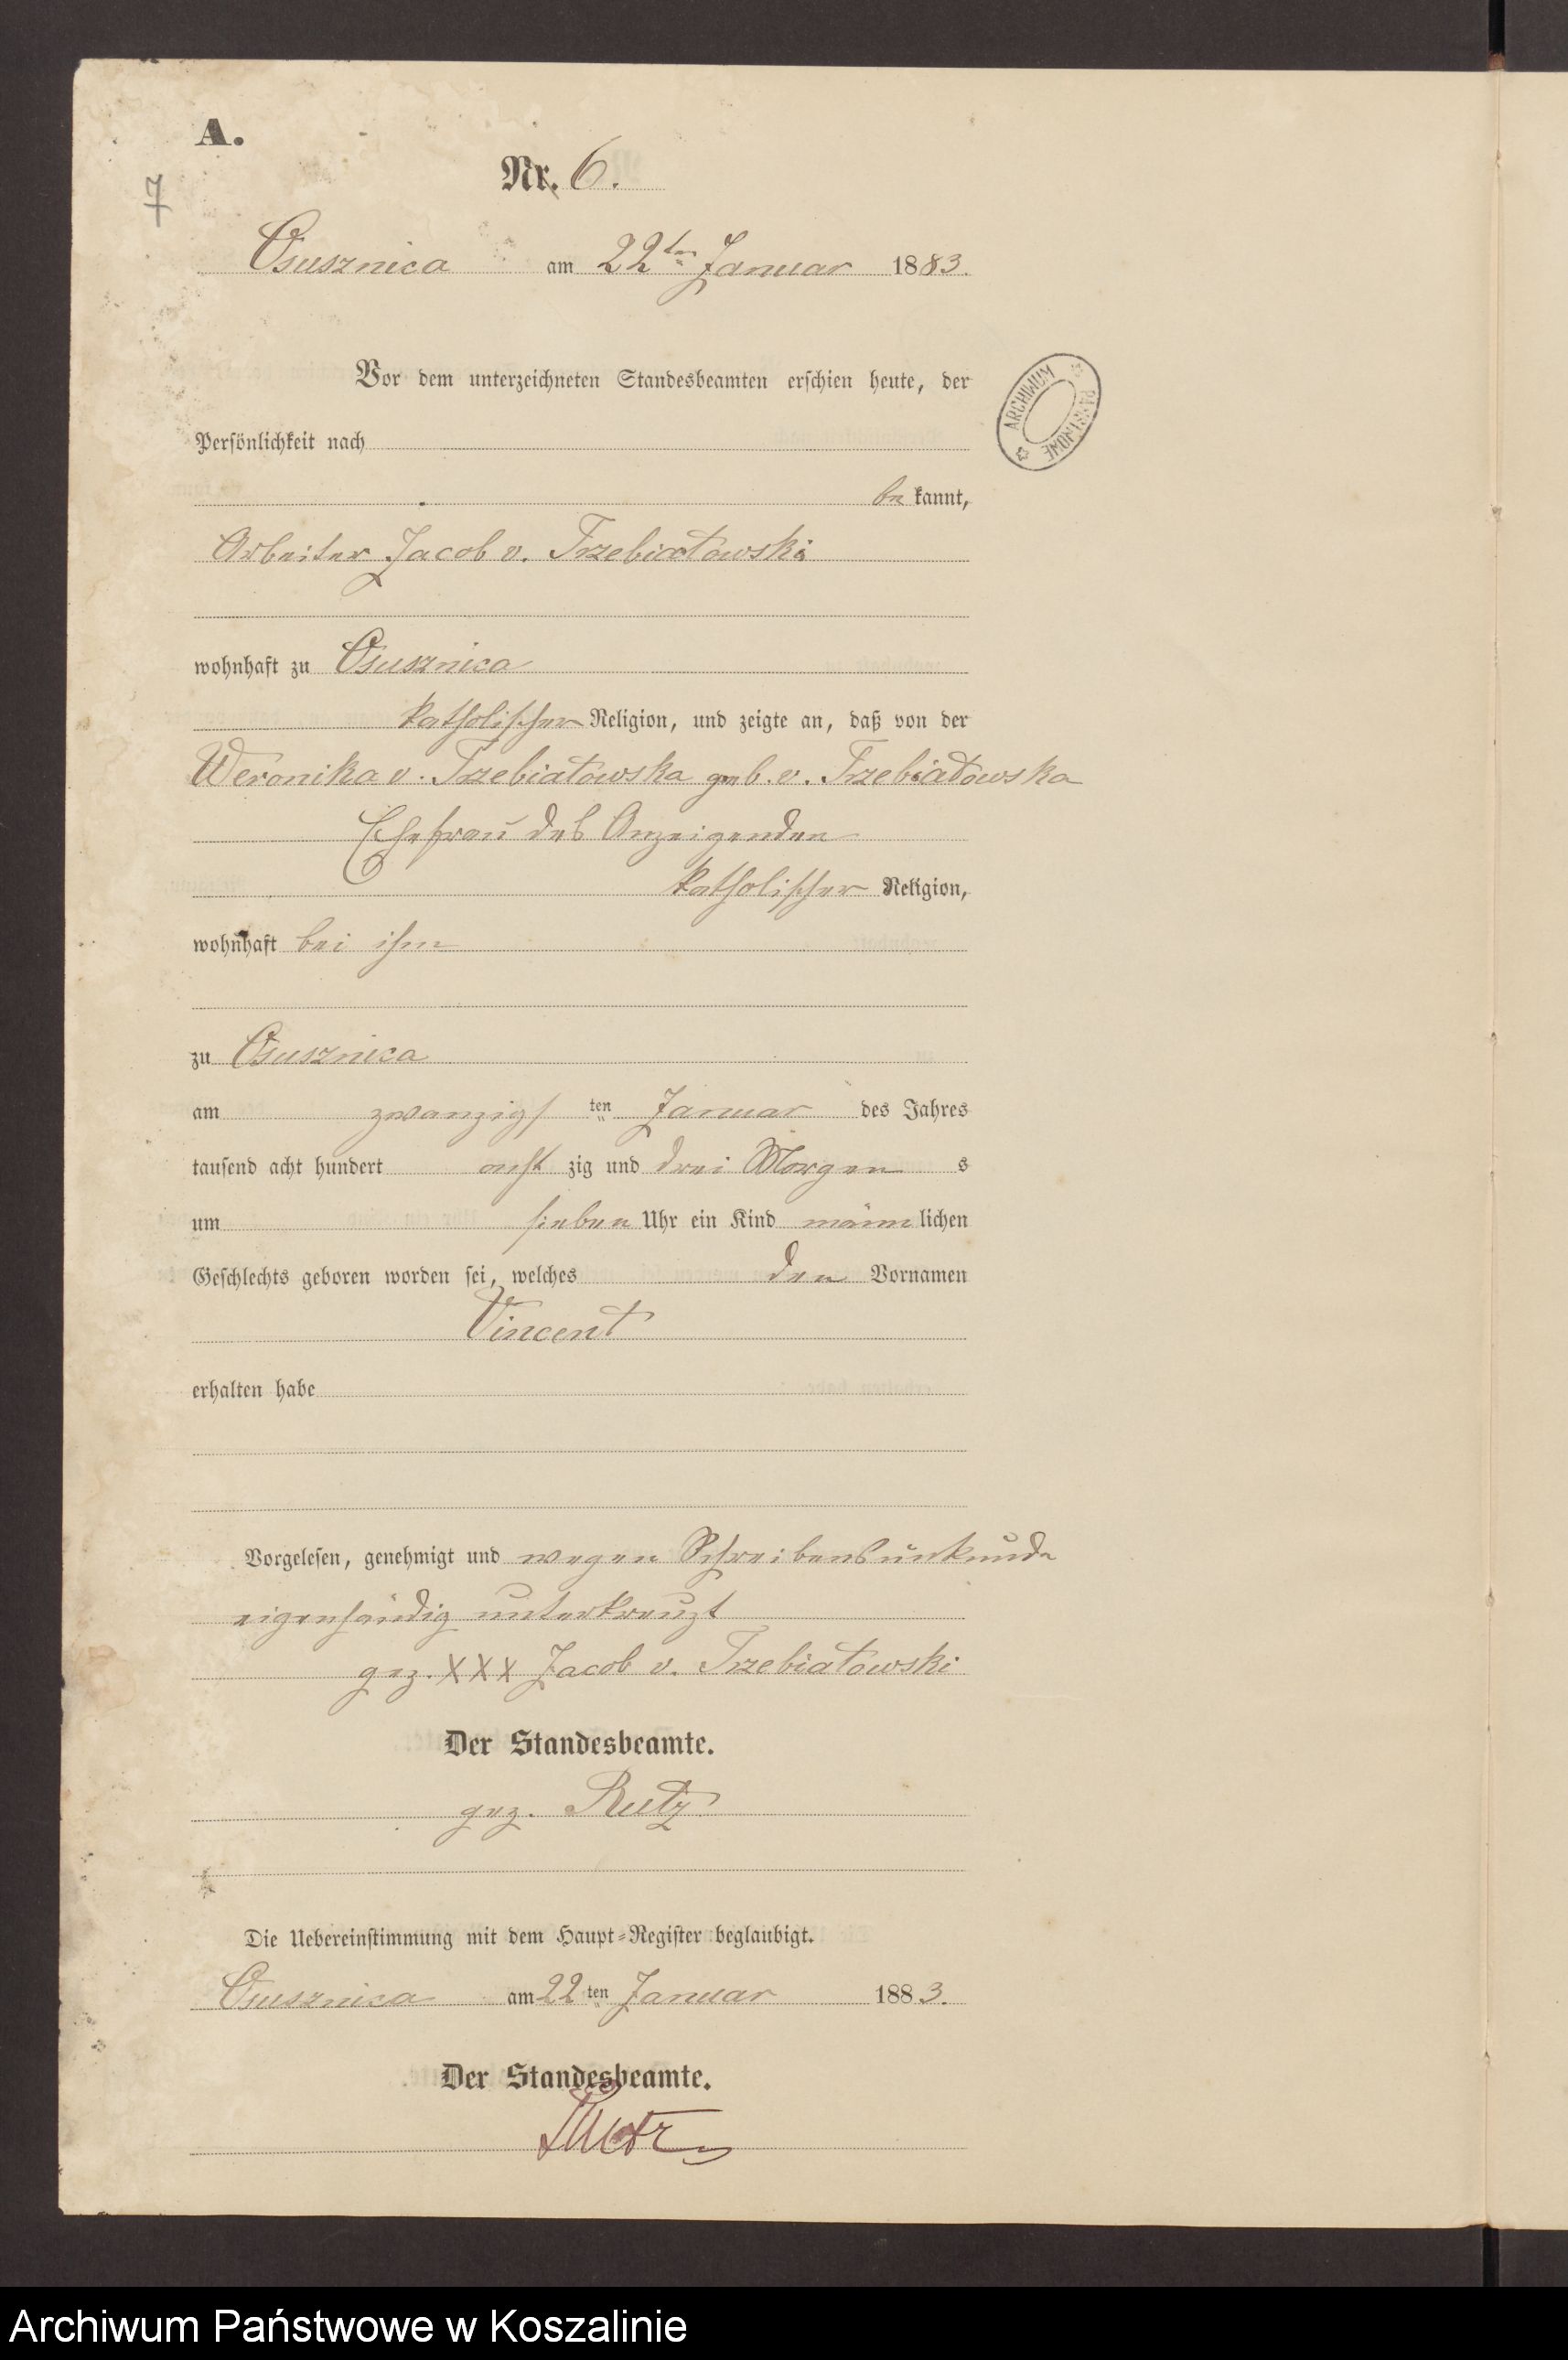 A.
7
Nr. 6.
Osusznica am 22ten Januar 1883.
Vor dem unterzeichneten Standesbeamten erschien heute, der
Persönlichkeit nach
be kannt,
ARCHIWUM PAŃSTWOWE
Arbeiter Jacob v. Trzebiatowski
wohnhaft zu Osusznica
katholischer Religion, und zeigte an, daß von der
Weronika v. Trzebiatowska geb. v. Trzebiatowska
Ehefrau des Anzeigenden
katholischer Religion,
wohnhaft bei ihm
zu Osusznica
am zwanzigs ten Januar des Jahres
tausend acht hundert acht zig und drei Morgen s
um sieben Uhr ein Kind männ lichen
Geschlechts geboren worden sei, welches den Vornamen
Vincent
erhalten habe
Vorgelesen, genehmigt und wegen Schreibensunkunde
eigenhändig unterkreuzt
gez. XXX Jacob v. Trzebiatowski
Der Standesbeamte.
gez. Rutz
Die Uebereinstimmung mit dem Haupt-Register beglaubigt.
Osusznica am 22 ten Januar 1883.
Der Standesbeamte.
Rutz
Archiwum Państwowe w Koszalinie